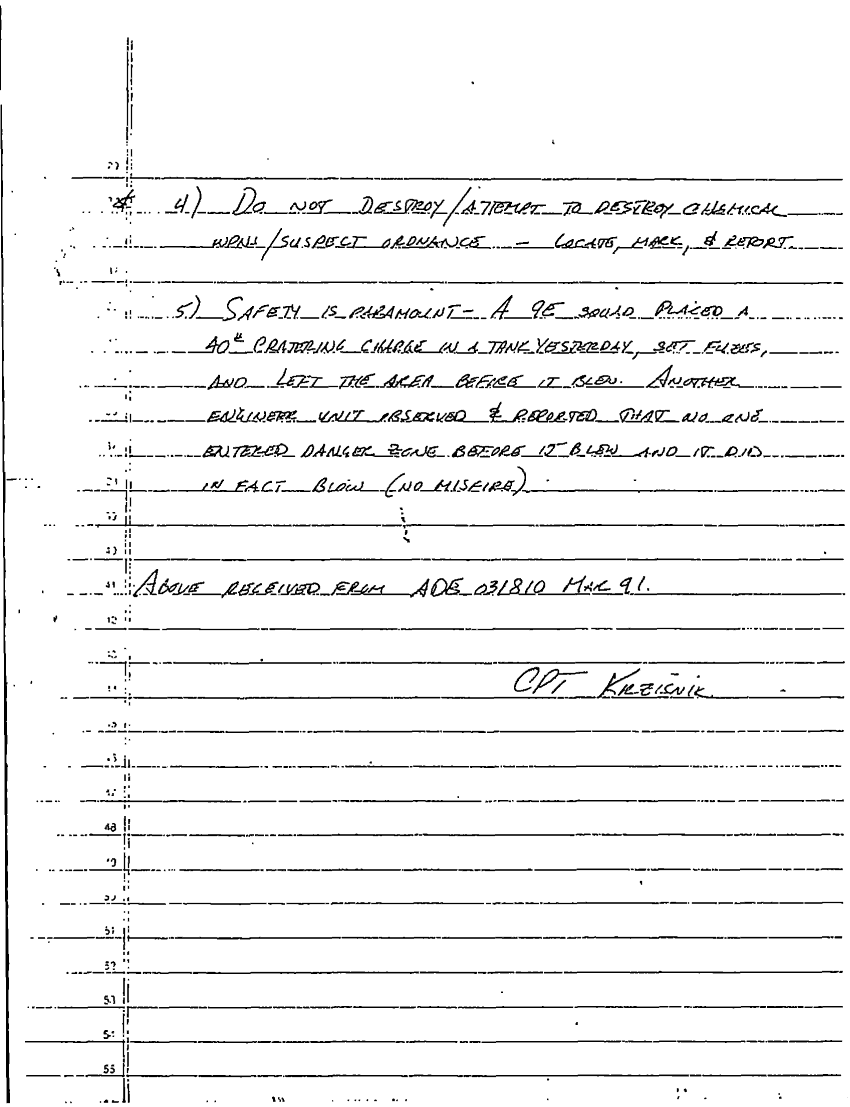 4) DO NOT DESTROY/ATTEMPT TO DESTROY CHEMICAL
WPNS/SUSPECT ORDNANCE - LOCATE, MARK, & REPORT.
5) SAFETY IS PARAMOUNT - A 9E SQUAD PLACED A
40# CRATERING CHARGE IN A TANK YESTERDAY, SET FUZES,
AND LEFT THE AREA BEFORE IT BLEW. ANOTHER
ENGINEER UNIT OBSERVED & REPORTED THAT NO ONE
ENTERED DANGER ZONE BEFORE IT BLEW AND IT DID
IN FACT BLOW (NO MISFIRE)
41 ABOVE RECEIVED FROM ADE 031810 MAR 91.
CPT KRZISNIK
48
51
52
53
55